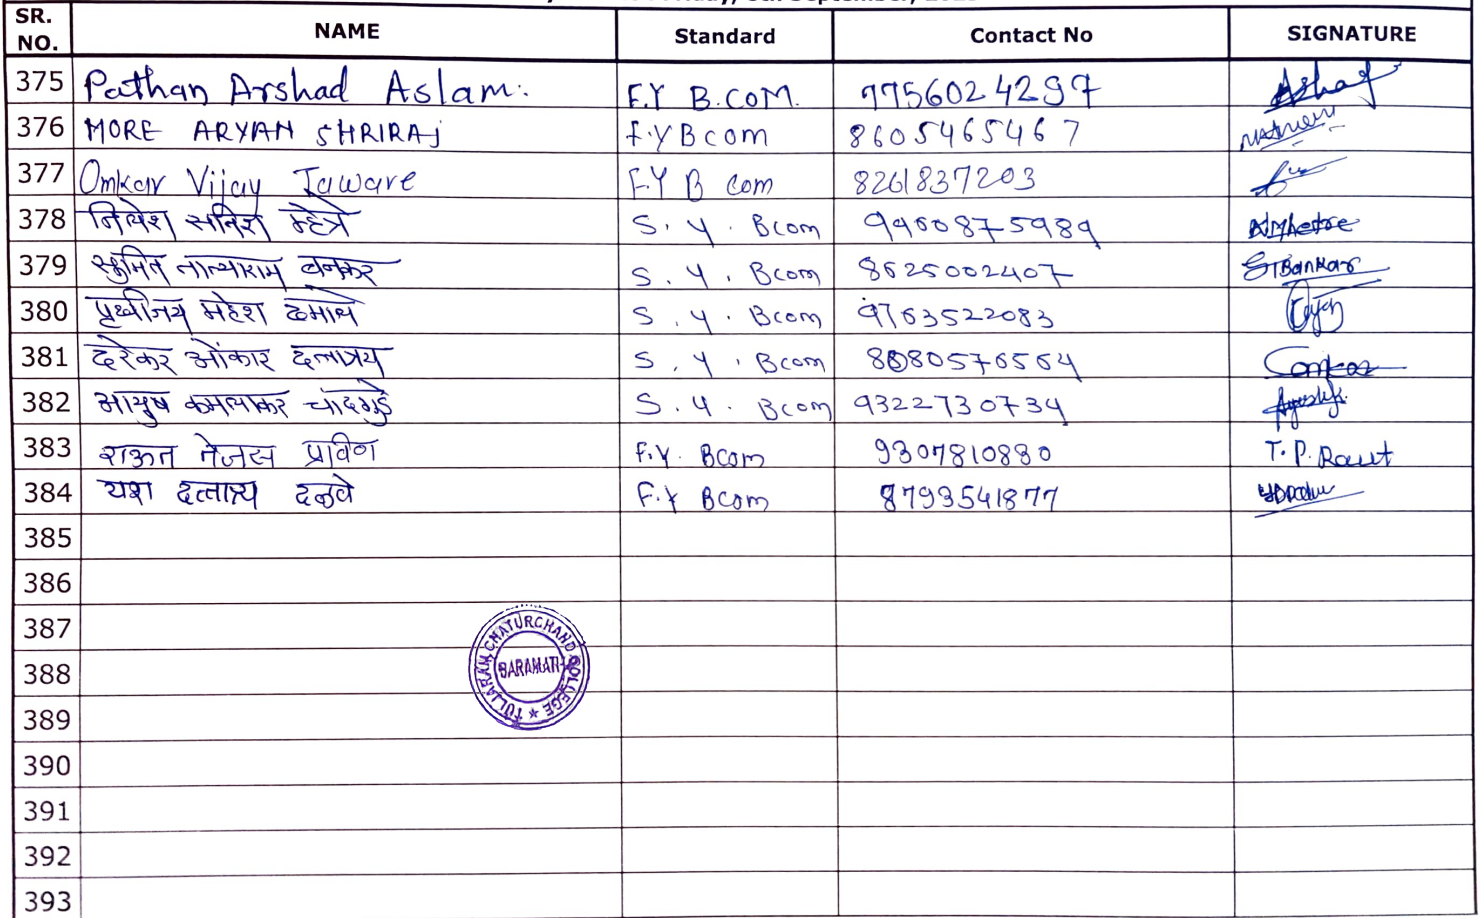 SR. NO. NAME Standard Contact No SIGNATURE
375 Pathan Arshad Aslam. F.Y B.COM. 7756024297
376 MORE ARYAN SHRIRAJ F.Y Bcom 8605465467
377 Omkar Vijay Taware F.Y B com 8261837203
378 निलेश सतिश म्हेत्रे S. Y. Bcom 9960875989 NMhetre
379 सुमित तात्याराम बनकर S. Y. Bcom 8625002407 STBankar
380 पृथ्वीजय महेश दमाये S. Y. Bcom 9763522083
381 दरेकर ओंकार दत्तात्रय S. Y. Bcom 8080576564 Omkar
382 आयुष कमलाकर चांदगुडे S. Y. Bcom 9322730734 Ayush
383 राऊत तेजस प्रविण F.Y. Bcom 9307810880 T.P. Raut
384 यश दत्तात्र्य दळवे F.Y Bcom 8793541877
385
386
387
TULJARAM CHATURCHAND COLLEGE
BARAMATI
388
389
390
391
392
393